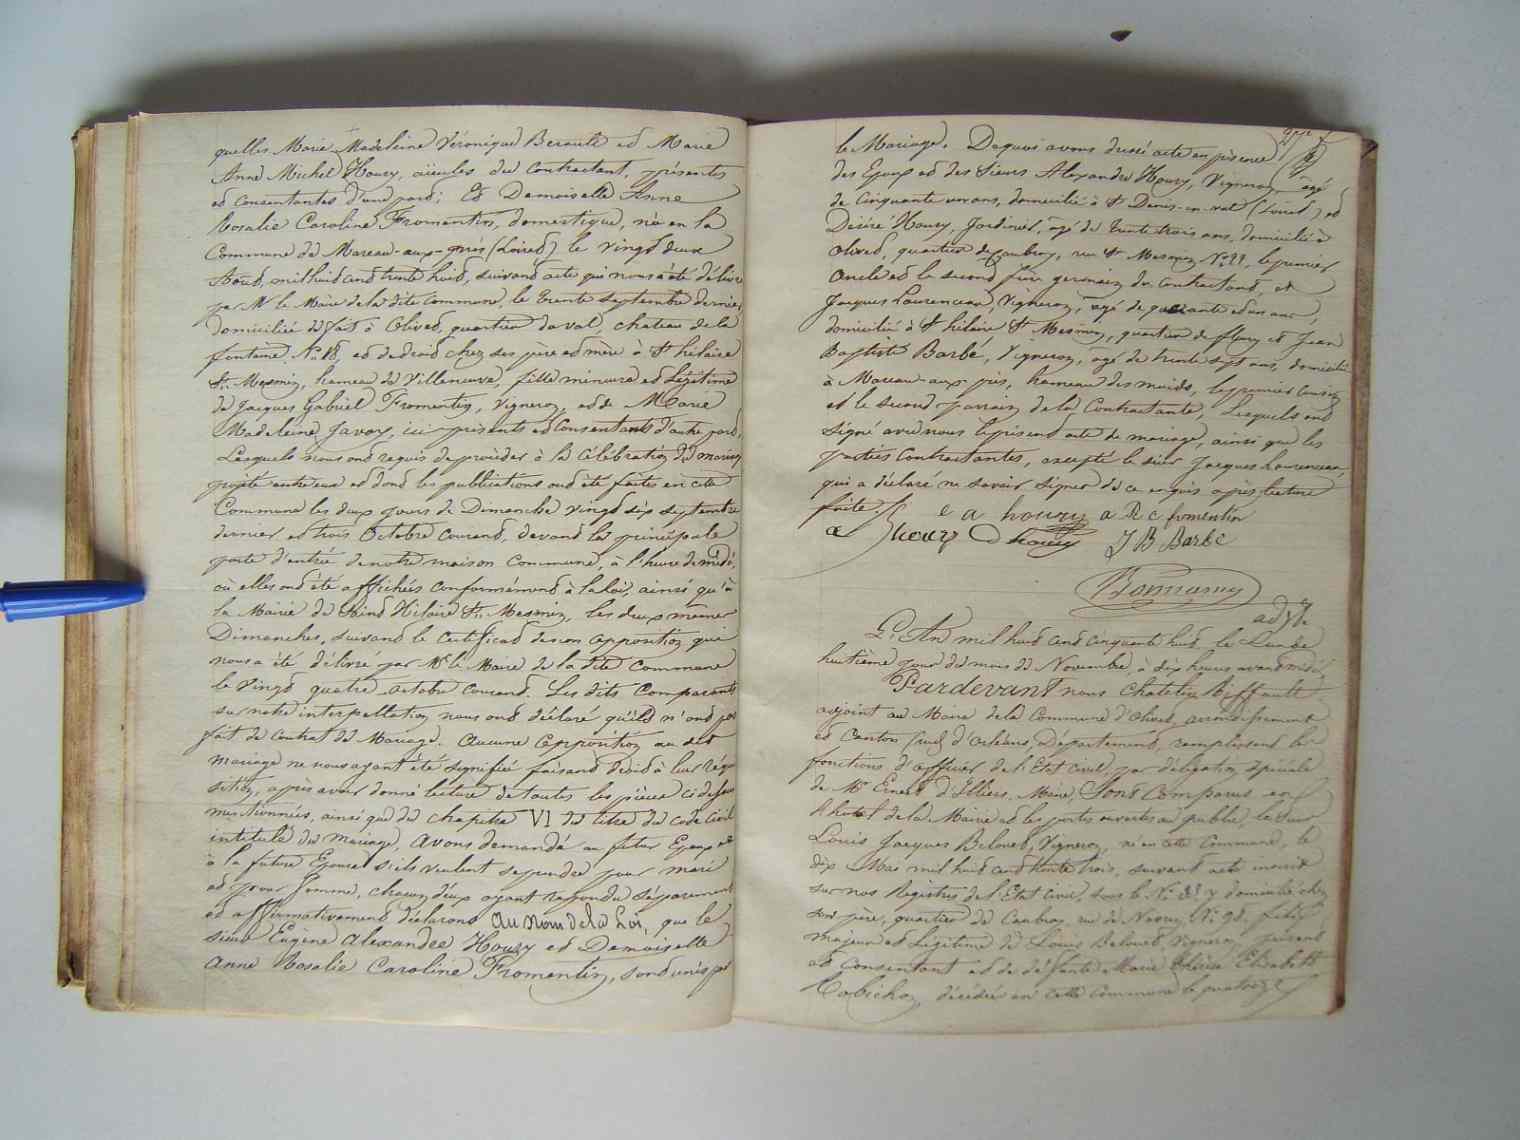 quelles Marie Madeleine Véronique Berault et Marie
Anne Michel Houry, aïeules du Contractant, présentes
et consentantes d'une part; Et Demoiselle Anne
Rosalie Caroline Fromentin, domestique, née en la
Commune de Mareau-aux-près (Loiret) le vingt deux
Août, mil huit cent trente huit, suivant acte qui nous a été délivré
par Mr le Maire de la dite Commune, le trente septembre dernier
domiciliée de fait à Olivet, quartier du val, chateau de la
fontaine No 18, et de droit chez ses père et mère à St hilaire
St Mesmin, hameau de Villeneuve, fille mineure et Légitime
de Jacques Gabriel Fromentin, Vigneron, et de Marie
Madeleine Javoy, ici présents et Consentants d'autre part,
Lesquels nous ont requis de procéder à la Célébration du mariage
projeté entr'eux et dont les publications ont été faites en cette
Commune les deux jours de Dimanche vingt six septembre
dernier et trois Octobre courant, devant la principale
porte d'entrée de notre maison Commune, à l'heure de midi,
où elles ont été affichées conformément à la loi, ainsi qu'à
la Mairie de Saint Hilaire St Mesmin, les deux mêmes
Dimanches, suivant le Certificat de non opposition qui
nous a été délivré par Mr le Maire de la dite Commune
le vingt quatre octobre courant. Les dits Comparants
sur notre interpellation nous ont déclaré qu'ils n'ont pas
fait de Contrat de Mariage. Aucune opposition au dit
mariage ne nous ayant été signifiée faisant droit à leur réqui
sition, après avoir donné lecture de toutes les pièces ci dessus
mentionnées, ainsi que du chapitre VI du titre du code Civil
intitulé du Mariage, avons demandé au futur Epoux et
à la future Epouse s'ils veulent se prendre pour mari
et pour femme, chacun d'eux ayant répondu séparément
et affirmativement déclarons au nom de la Loi, que le
sieur Eugène Alexandre Houry et Demoiselle
Anne Rosalie Caroline Fromentin, sont unis par
le Mariage. De quoi avons dressé acte en présence
des Epoux et des Sieurs Alexandre Houry, Vigneron, âgé
de cinquante un ans, domicilié à St Denis-en-val (Loiret) et
Désiré Houry, Jardinier, âgé de trente trois ans, domicilié à
Olivet, quartier de Caubray, rue St Mesmin No 22, le premier
oncle et le second frère germain du Contractant, et
Jacques Laurenceau, Vigneron, âgé de quarante et un ans,
domicilié à St hilaire St Mesmin, quartier de fleury et Jean
Baptiste Barbé, Vigneron, âgé de trente sept ans, domicilié
à Mareau-aux-près, hameau des muids, le premier Cousin
et le second parrain de la Contractante, Lesquels ont
signé avec nous le présent acte de mariage, ainsi que les
parties contractantes, excepté le sieur Jacques Laurenceau
qui a déclaré ne savoir signer de ce enquis après lecture
faite.
e a houry a R c fromentin
a houry D houry J B Barbé
L'An mil huit cent cinquante huit, le Lundi
huitième jour du mois de Novembre, à dix heures avant midi
Pardevant nous Chatelin Biffault
adjoint au Maire de la Commune d'Olivet, arrondissement
et Canton (sud) d'Orléans, Département, remplissant les
fonctions d'officier de l'Etat Civil, par délégation spéciale
de Mr Ernest d'Illiers, Maire, Sont Comparus en
l'hotel de la Mairie et les portes ouvertes au public, le Sieur
Louis Jacques Belouet, Vigneron, né en cette Commune, le
dix Mai mil huit cent trente trois, suivant acte inscrit
sur nos Registres de l'Etat Civil, sous le No 22 y domicilié chez
son père, quartier de Caubray, rue de No 98, fils
majeur et Légitime de Louis Belouet Vigneron, présent
et consentant et de défunte Marie Thérèse Elizabeth
Robichon, décédée en cette Commune le quatorze